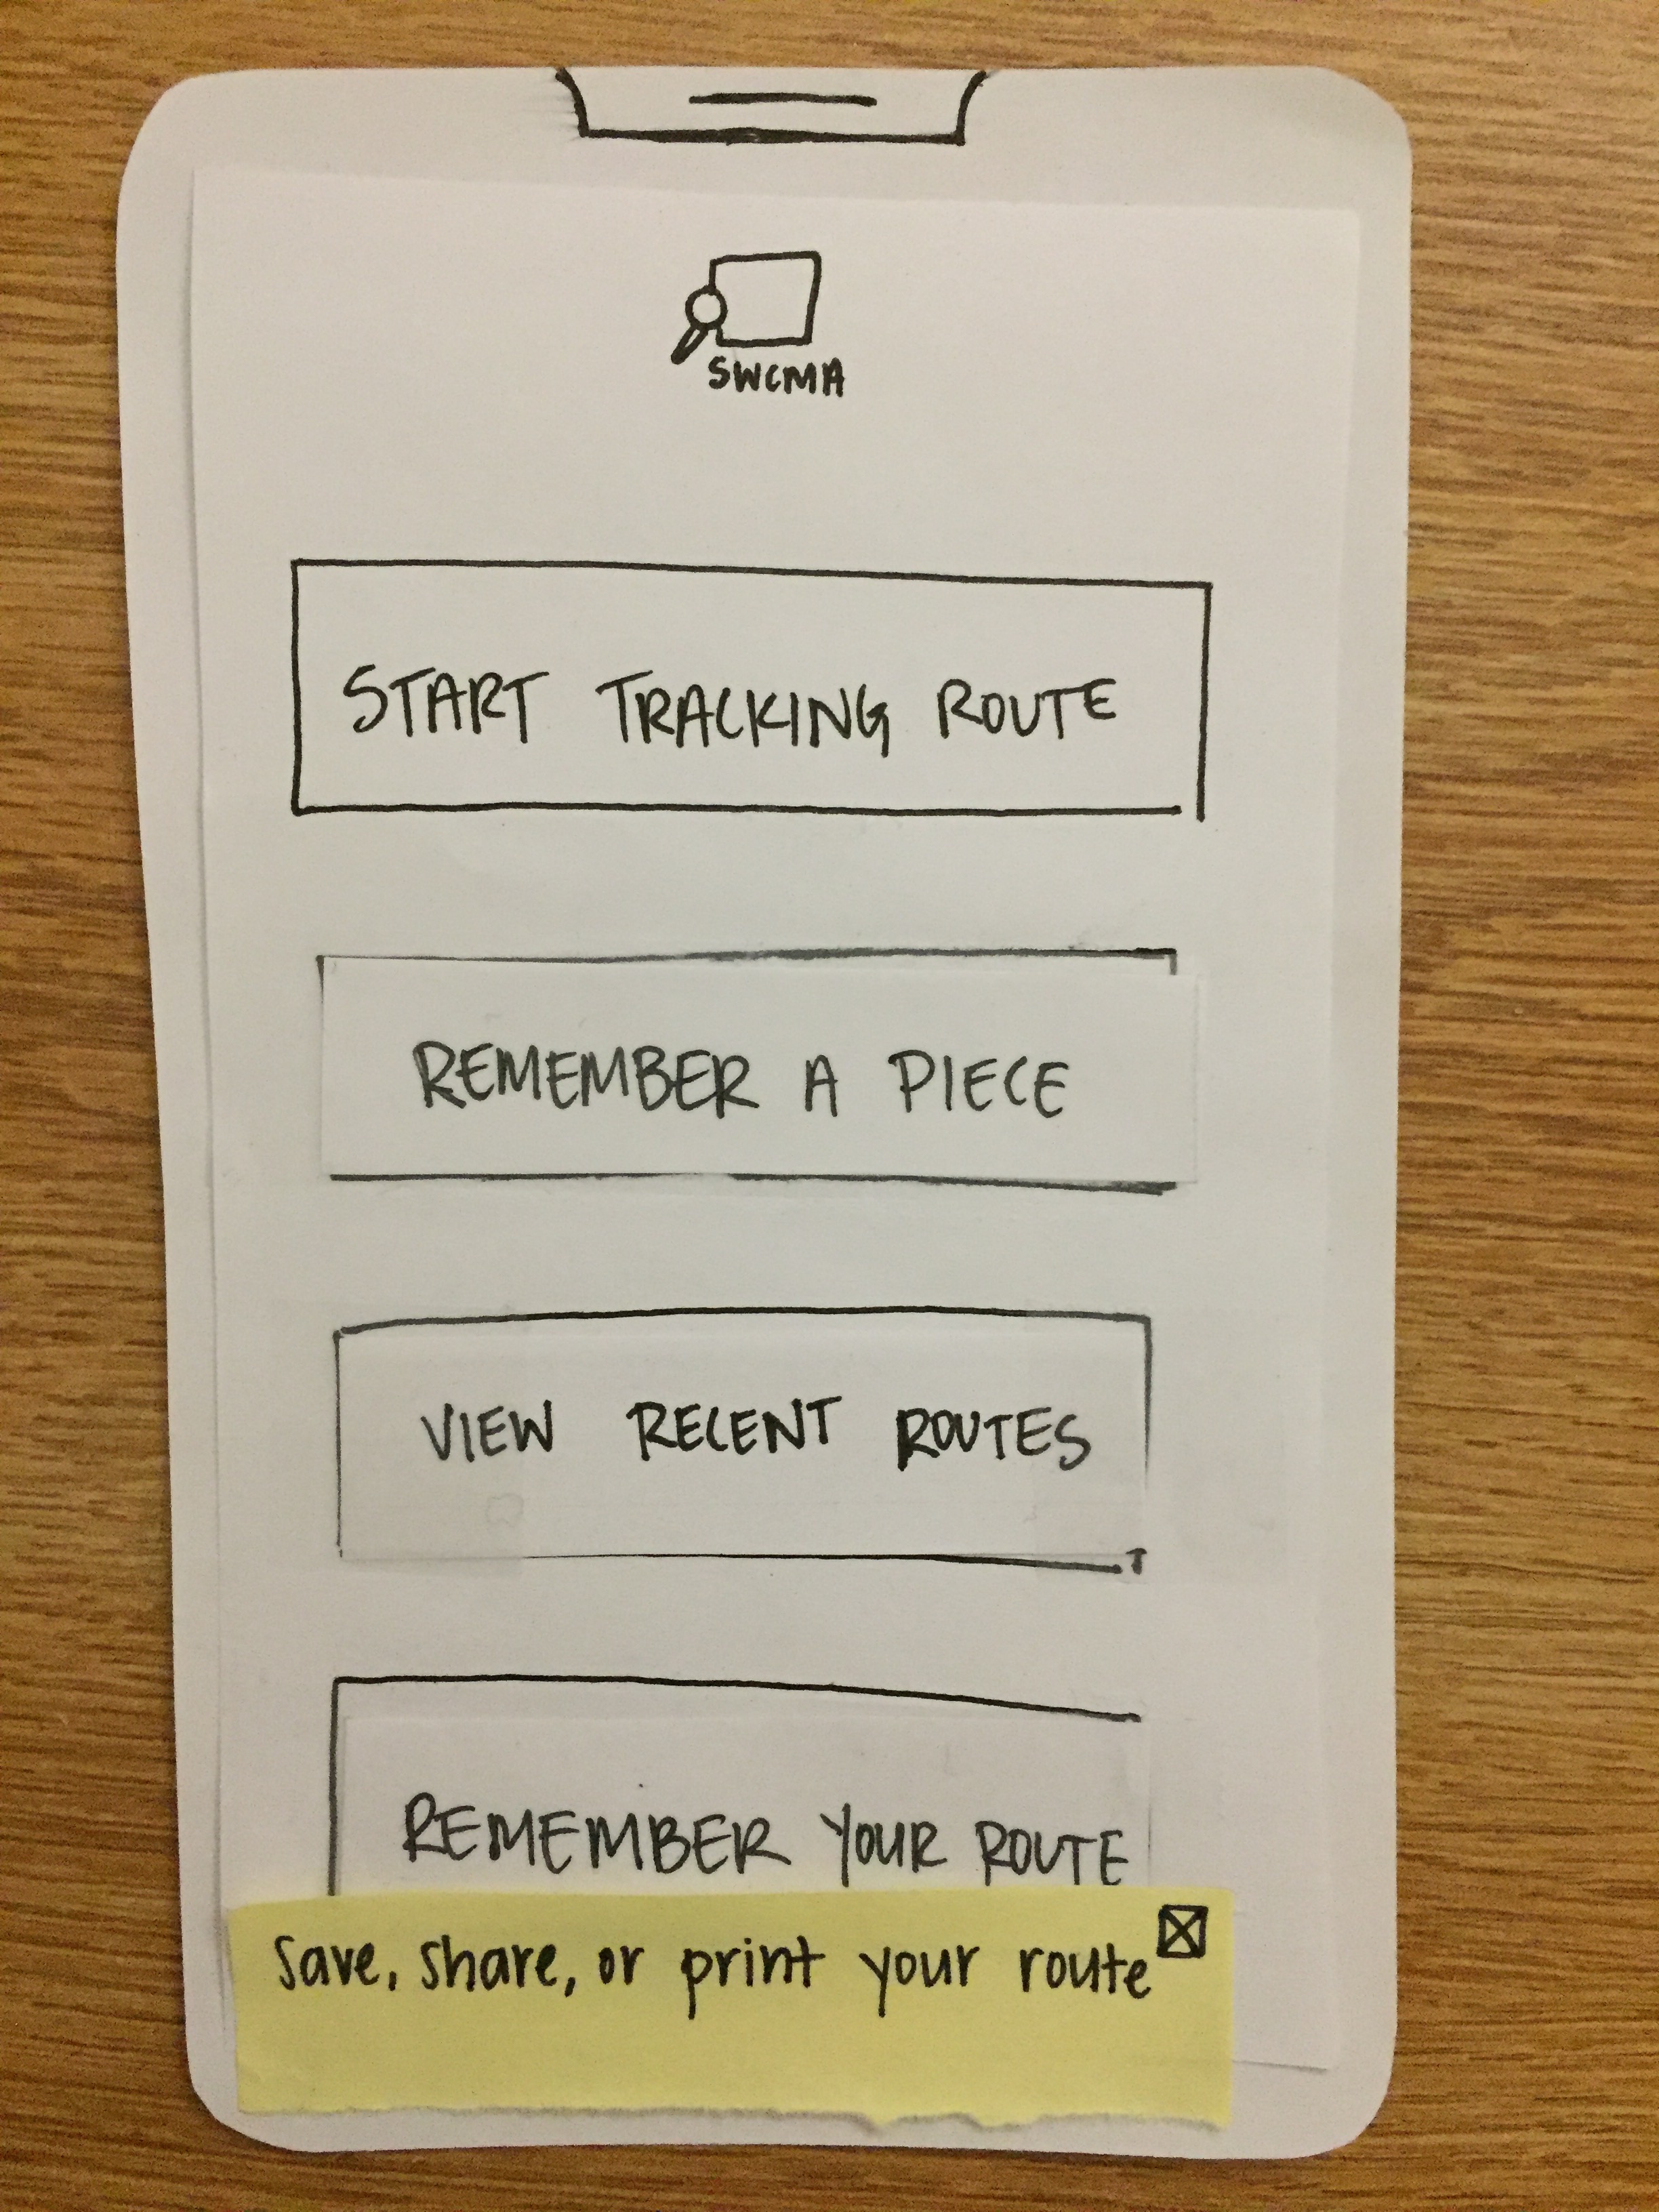 SWCMA
START TRACKING ROUTE
REMEMBER A PIECE
VIEW RECENT ROUTES
REMEMBER YOUR ROUTE
save, share, or print your route